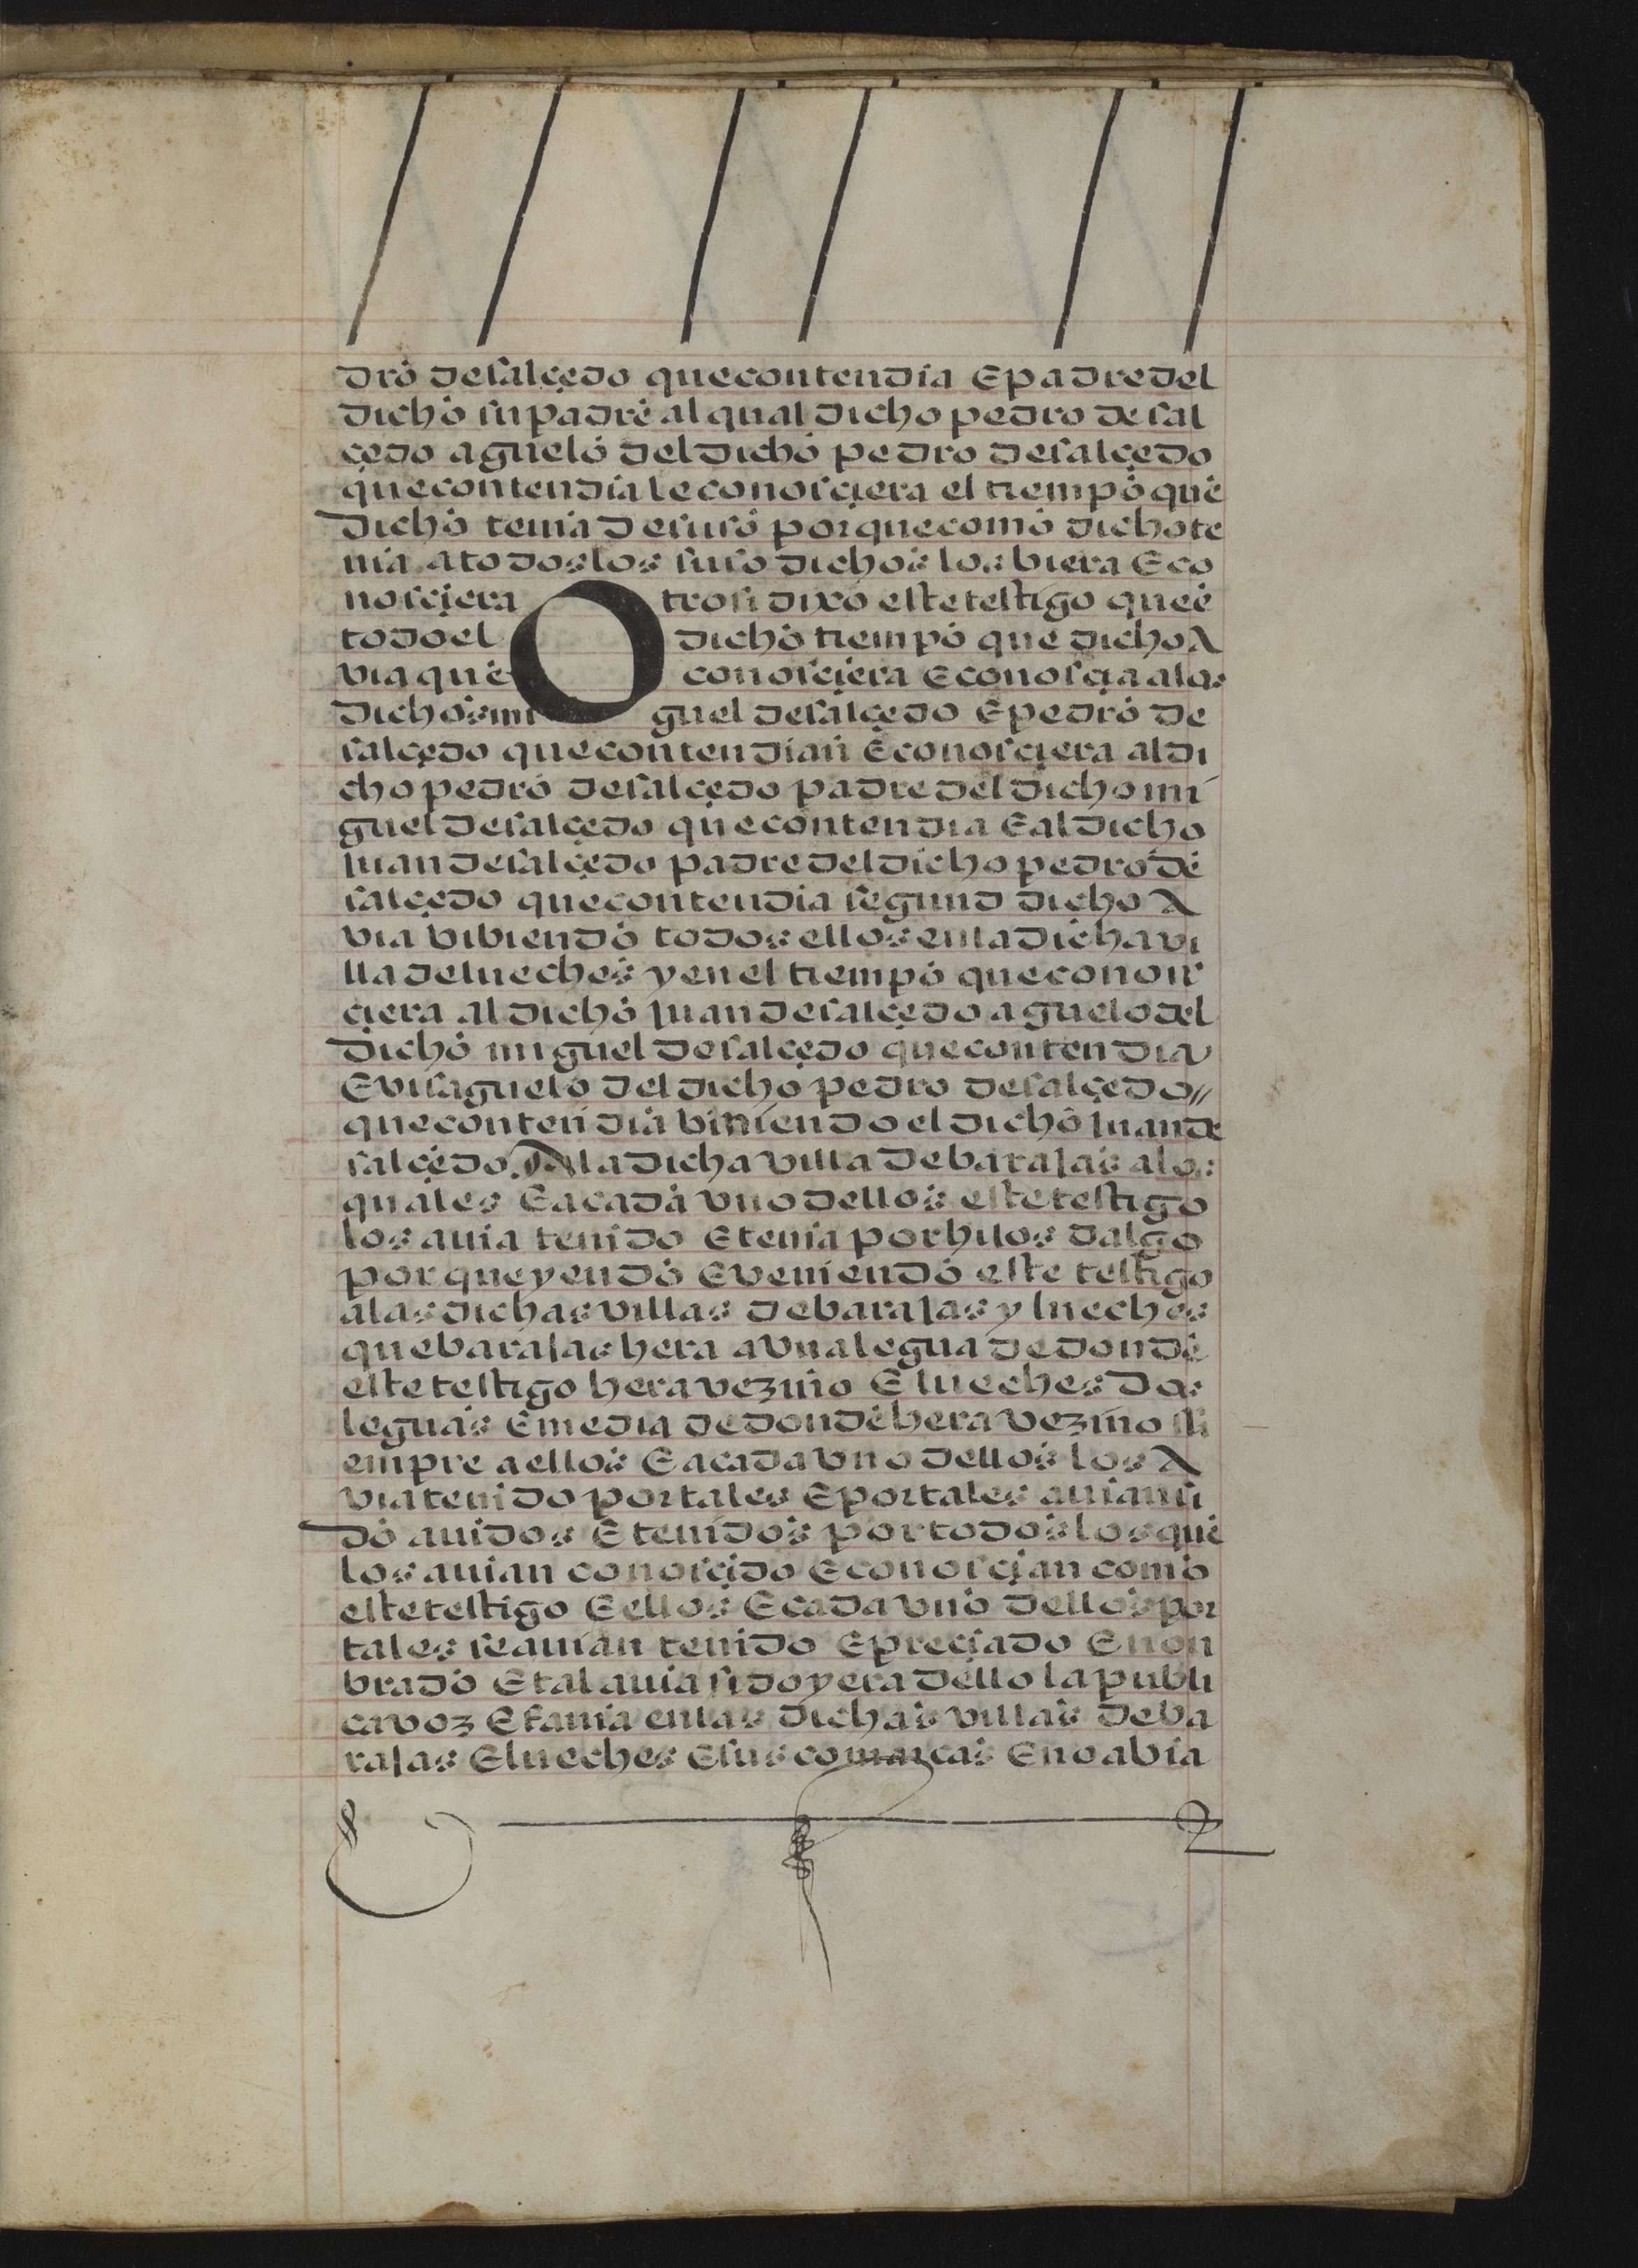 dro de salçedo que contendia E padre del
dicho su padre al qual dicho pedro de sal
çedo aguelo del dicho pedro de salçedo
que contendia le conosçiera el tiempo que
dicho tenia de suso porque como dicho te
nia a todos los suso dichos los biera E co
nosçiera Otrosi dixo este testigo que e
todo el dicho tiempo que dicho A
via que conosçiera E conosçia a los
dichos mi guel de salçedo E pedro de
salçedo que contendian E conosçiera al di
cho pedro de salçedo padre del dicho mi
guel de salçedo que contendia E al dicho
Juan de salçedo padre del dicho pedro de
salçedo que contendia segund dicho A
via vibiendo todos ellos en la dicha vi
lla de lueches y en el tiempo que conos
çiera al dicho Juan de salçedo aguelo del
dicho miguel de salçedo que contendia
E visaguelo del dicho pedro de salçedo //
que contendia biniendo el dicho Juan de
salçedo A la dicha villa de barajas a los
quales E a cada vno dellos este testigo
los auia tenido E tenia por hijos dalgo
porque yendo E veniendo este testigo
a las dichas villas de barajas y lueches
que barajas hera a vna legua de donde
este testigo hera vezino E lueches dos
leguas E media de donde hera vezino si
empre a ellos E a cada vno dellos los A
via tenido por tales E por tales auian si
do auidos E tenidos por todos los que
los auian conosçido E conosçian como
este testigo E ellos E cada vno dellos por
tales se auian tenido E preçiado E non
brado E tal auia sido y era dello la publi
ca voz E fama en las dichas villas de ba
rajas E lueches E sus comarcas E no abia